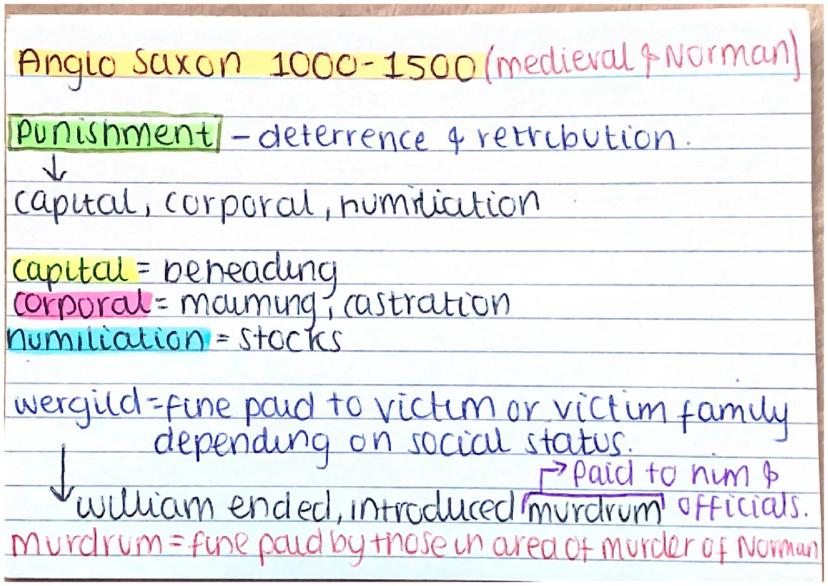 Anglo Saxon 1000-1500 (medieval & Norman)
punishment - deterrence & retribution.
↓
capital, corporal, humiliation
capital = beheading
corporal = maiming, castration
humiliation = stocks
wergild = fine paid to victim or victim family
depending on social status.
→ Paid to him &
↓ william ended, introduced 'murdrum' officials.
murdrum = fine paid by those in area of murder of Norman